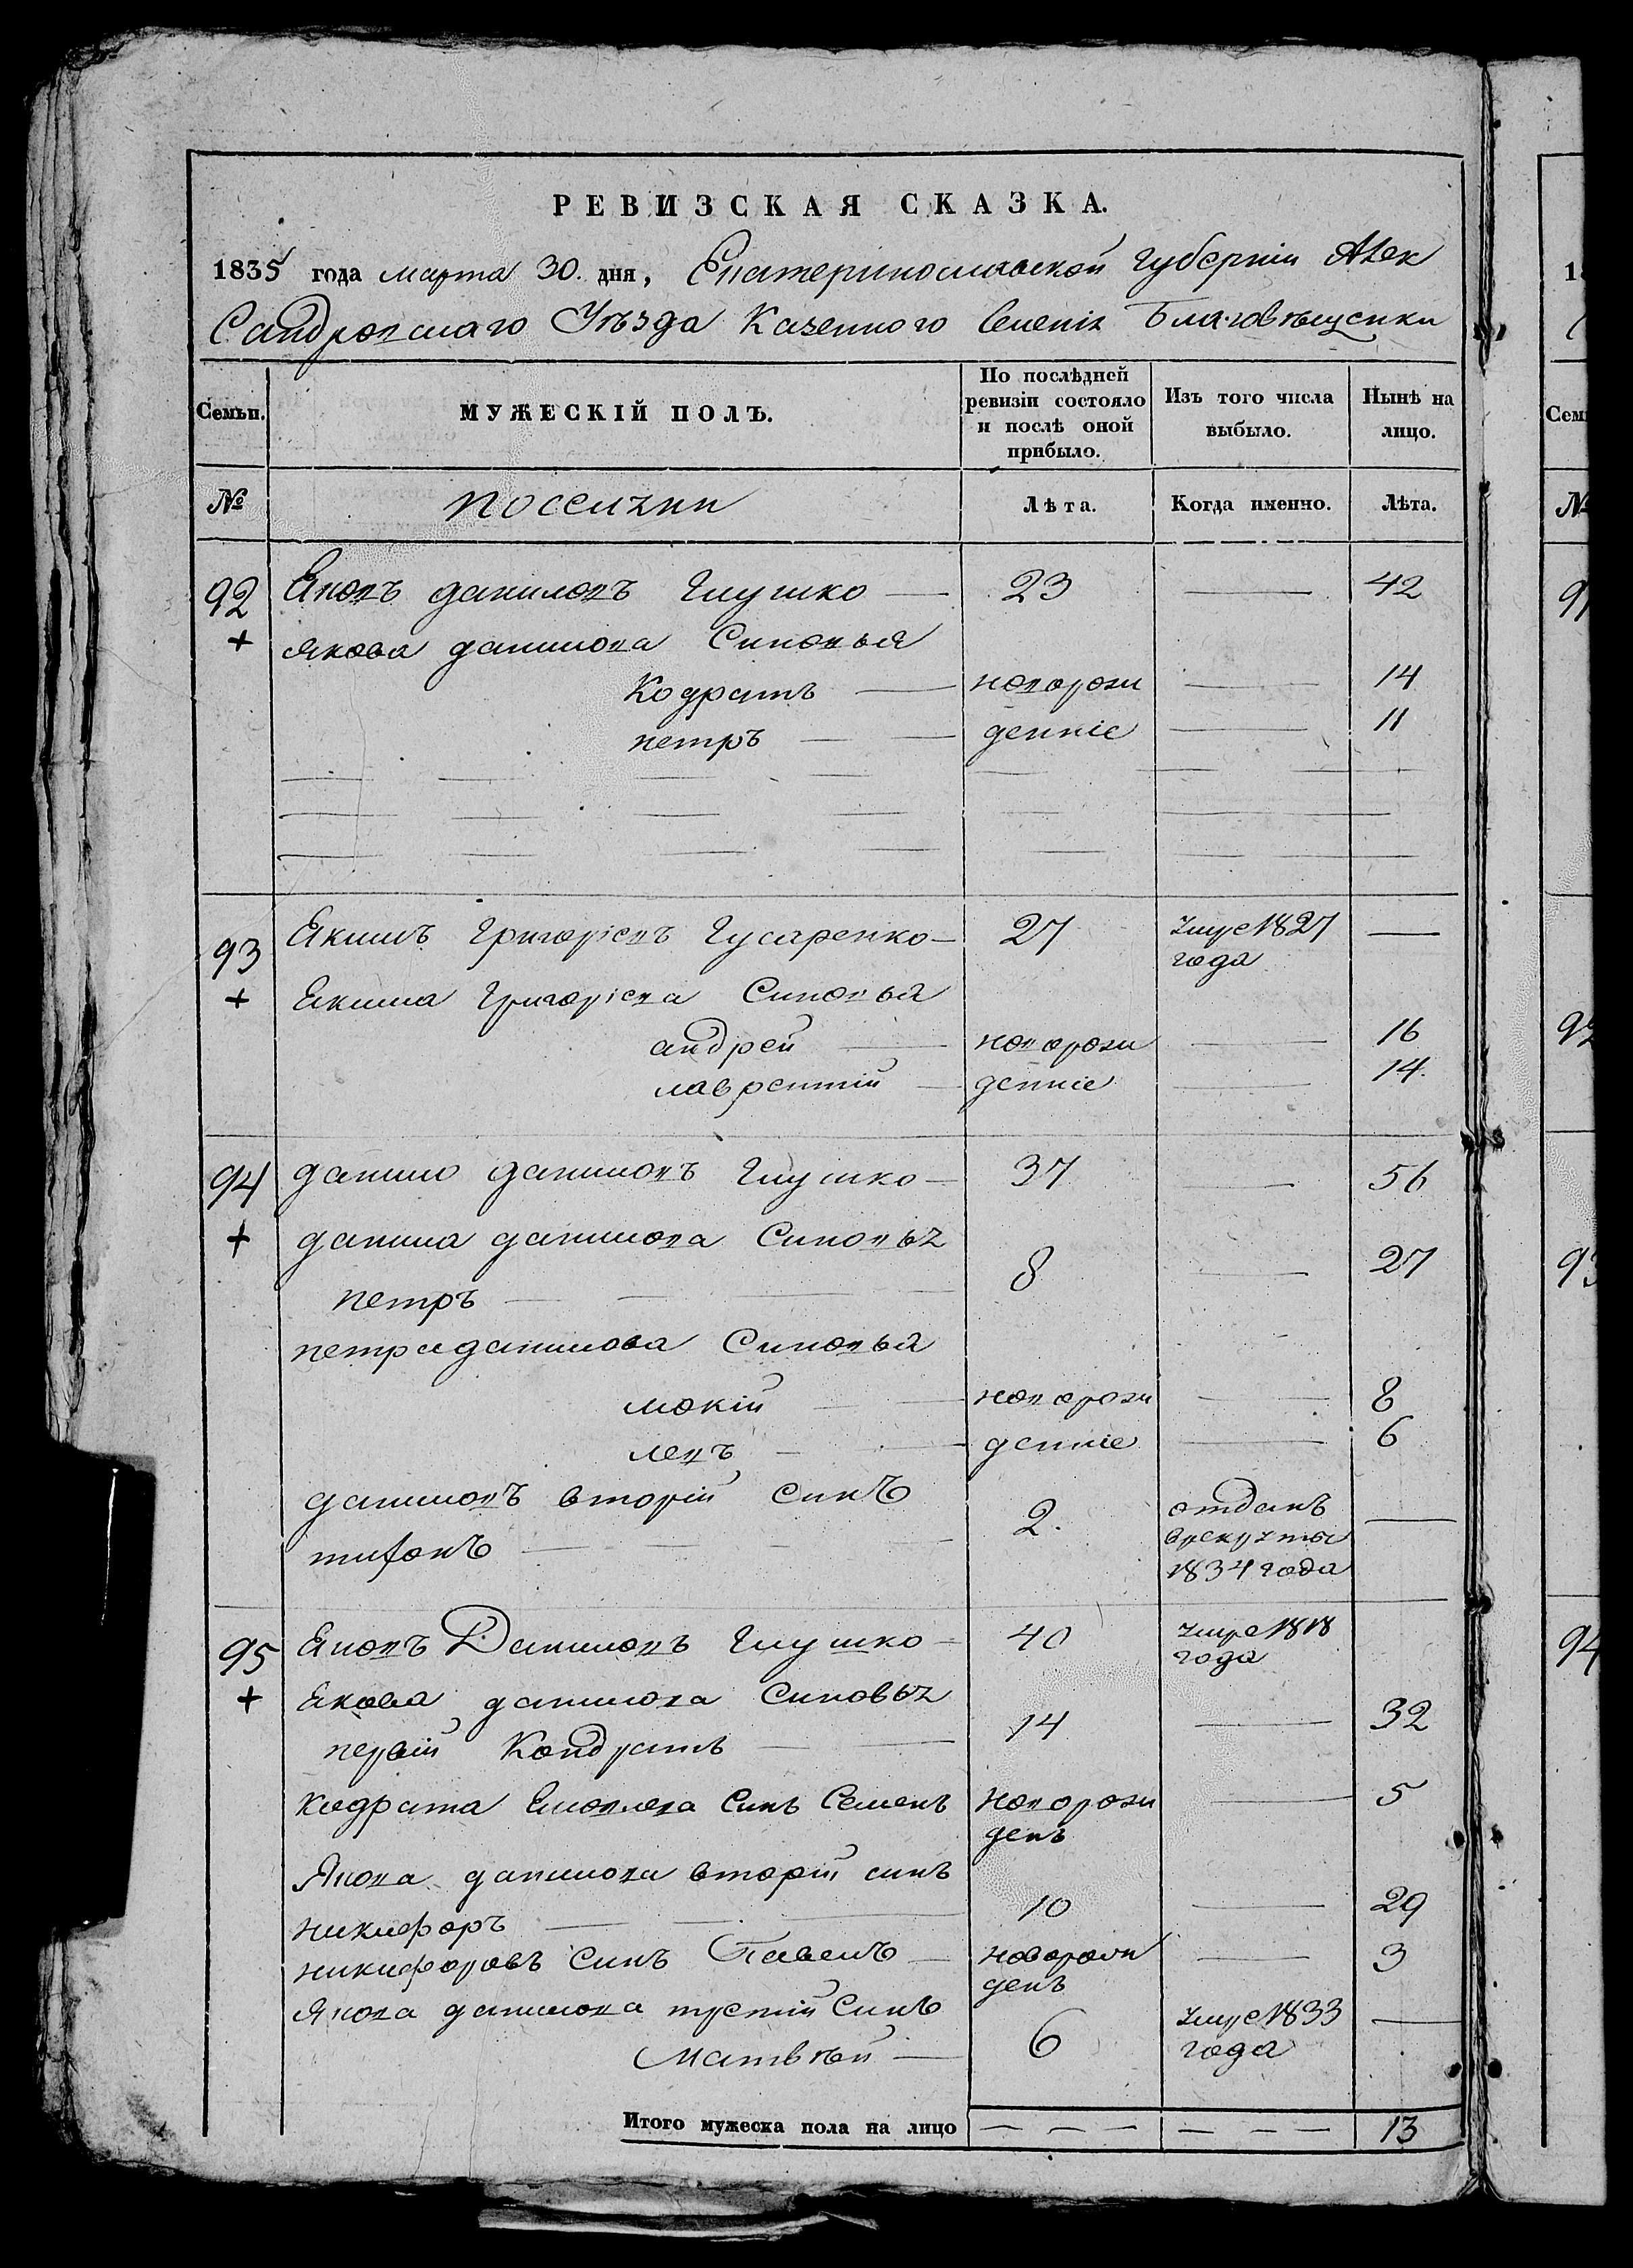 РЕВИЗСКАЯ СКАЗКА.
1835 года марта 30. дня, Екатеринославской губерніи Алек
Сандровскаго Уѣзда Казенного Селенія Благовѣщенки
Семьи. МУЖЕСКІЙ ПОЛЪ. По послѣдней ревизіи состояло и послѣ оной прибыло. Изъ того числа выбыло. Нынѣ на лицо.
№ Лѣта. Когда именно. Лѣта.
92 Яковъ даниловъ Глушко — 23 — 42
+ якова данилова Синовья
Кодратъ — новорож — 14
петръ — — денніе — 11
93 Якимъ Григоріевъ Гусаренко — 27 умре 1827 —
года
+ Якима Григоріева Синовья
андрей — новорож — 16
лаврентій — денніе — 14.
94 данило даниловъ Глушко — 37 — 56
+ данила данилова Синовья
петръ — — — — 8 — 27
петра данилова Синовья
мокій — — новорож — 8
левъ — — денніе — 6
даниловъ вторій синъ
тифонъ — — — — — 2. отданъ —
врекруты
1834 года
95 Яковъ Даниловъ Глушко — 40 умре 1818
года
+ Якова данилова Синовья
первій Кондратъ — — 14 — 32
кодрата Яковлева Синъ Семенъ новорож — 5
денъ
Якова данилова вторій синъ
никифоръ — — — 10 — 29
никифоровъ Синъ Павелъ — новорож — 3
денъ
Якова данилова третій Синъ
Матвѣй — 6 умре 1833 —
года
Итого мужеска пола на лицо — — — — — — 13
18
Сем
№
91
92
93
94